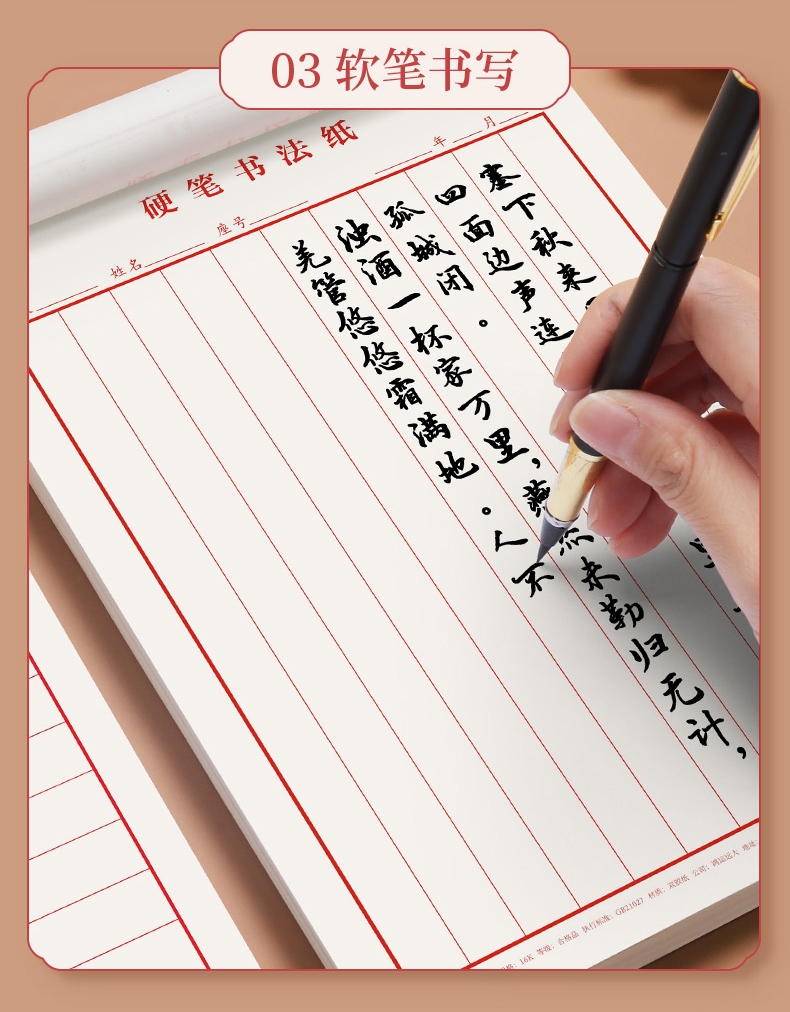 03 软笔书写
硬笔书法纸
姓名
座号
年
月
塞下秋来
四面边声连
里
孤城闭。
浊酒一杯家万里，燕
未勒归无计，
羌管悠悠霜满地。人不
16K 等级：合格品 执行标准：GB21027 材质：双胶纸 公司：鸿运远大 地址：